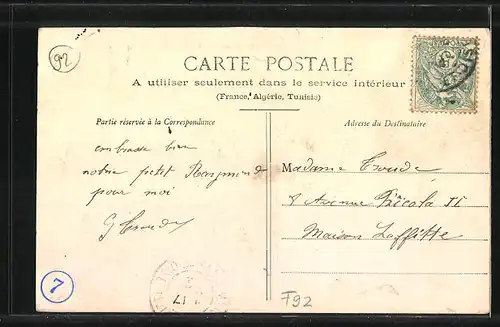 92
CARTE POSTALE
A utiliser seulement dans le service intérieur
(France, Algérie, Tunisie)
Partie réservée à la Correspondance
Adresse du Destinataire
embrasse bien
notre petit Raymond
pour moi
Madame
8 Avenue Nicola II
Maison Laffitte
7
17
F92